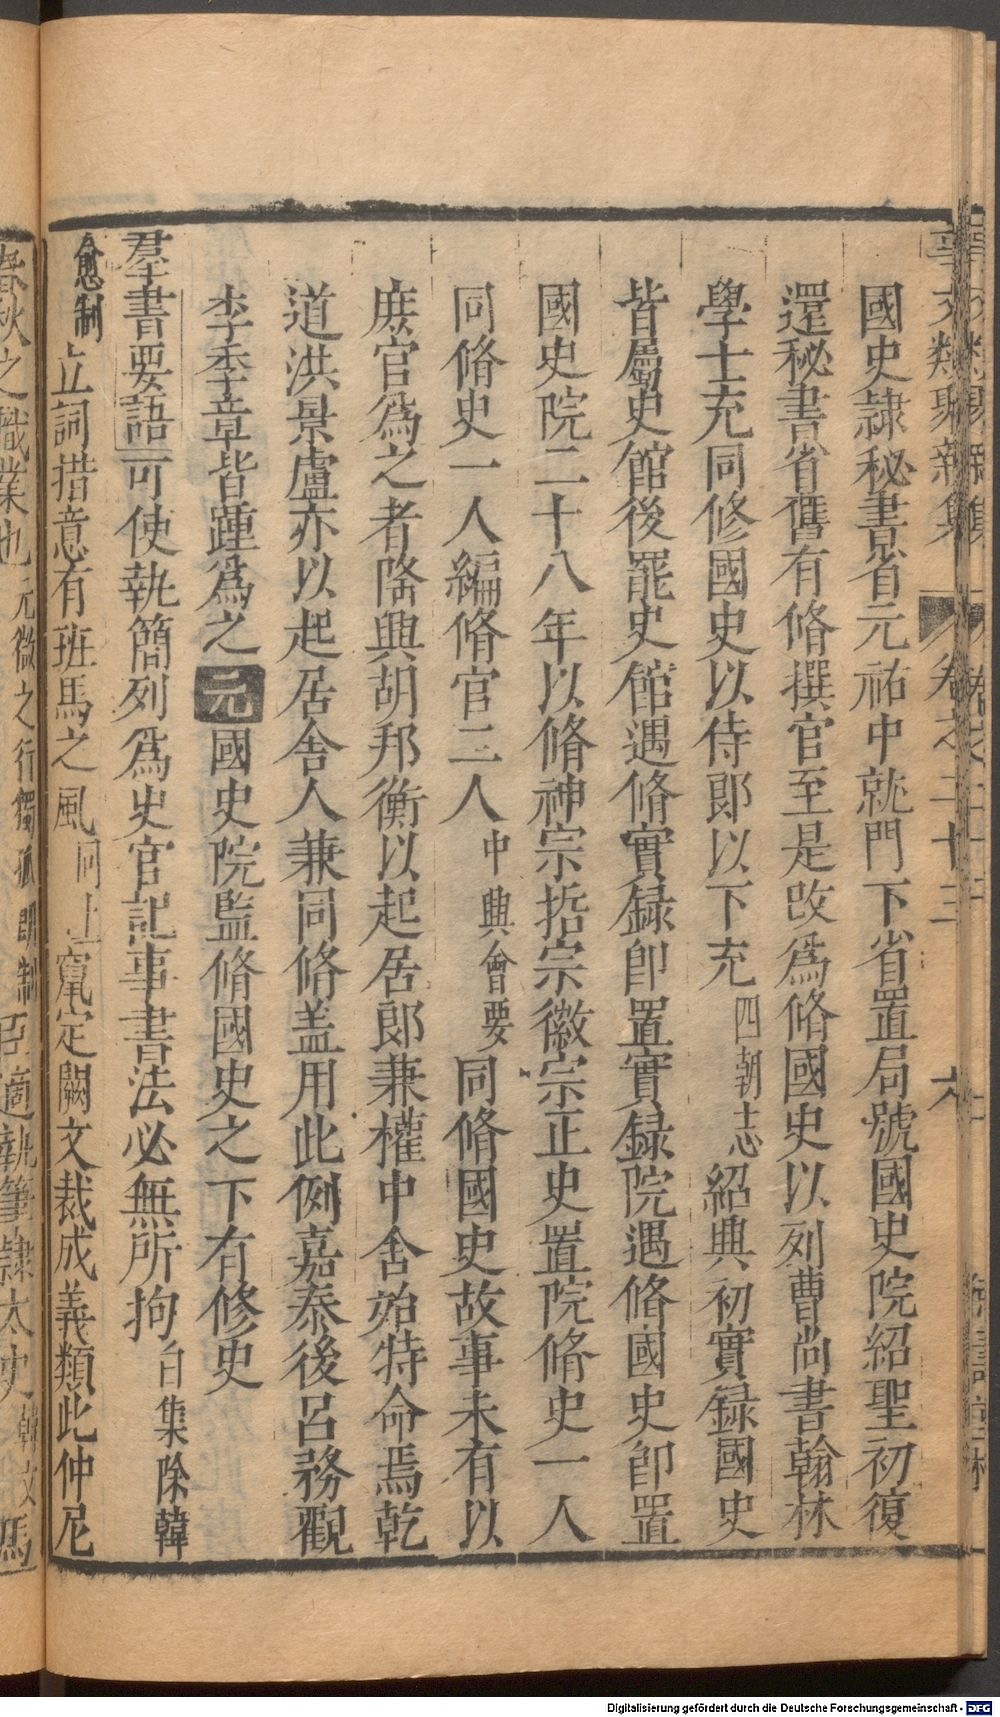 事文類聚新集 卷之二十三 六
國史隷秘書省元祐中就門下省置局號國史院紹聖初復
還秘書省舊有脩撰官至是改爲脩國史以列曹尚書翰林
學士充同修國史以侍郎以下充四朝志紹興初實録國史
皆屬史館後罷史館遇脩實録卽置實録院遇脩國史卽置
國史院二十八年以脩神宗哲宗徽宗正史置院脩史一人
同脩史一人編脩官三人中興會要同脩國史故事未有以
庶官爲之者隆興胡邦衡以起居郎兼權中舍始特命焉乾
道洪景盧亦以起居舍人兼同脩盖用此例嘉泰後呂務觀
李季章皆踵爲之元國史院監脩國史之下有修史
羣書要語可使執簡列爲史官記事書法必無所拘白集除韓
愈制立詞措意有班馬之風同上竄定闕文裁成義類此仲尼
春秋之職業也元微之行獨孤朗制臣適執筆隷太史韓文
Digitalisierung gefördert durch die Deutsche Forschungsgemeinschaft - DFG